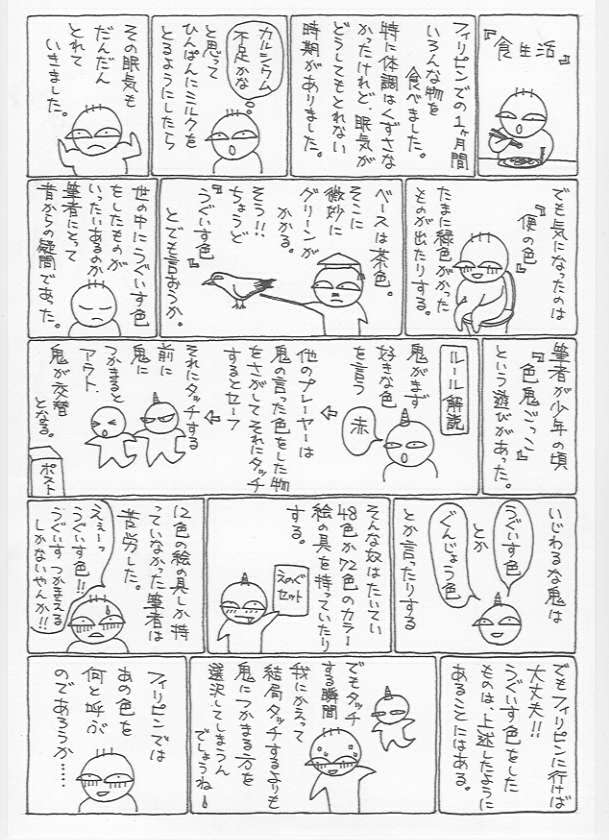 『食生活』
フィリピンでの1ヶ月間
いろんな物を
食べました。
特に体調はくずさな
かったけれど、眠気が
どうしてもとれない
時期がありました。
カルシウム
不足かな
と思って
ひんぱんにミルクを
とるようにしたら
その眠気も
だんだん
とれて
いきました。
でも気になったのは
『便の色』
たまに緑色がかった
ものが出たりする。
ベースは茶色。
そこに
微妙に
グリーンが
かかる。
そう!!
ちょうど
『うぐいす色』
とでも言おうか。
世の中にうぐいす色
をしたものが
いったいあるのか
筆者にとって
昔からの疑問であった。
筆者が少年の頃
『色鬼ごっこ』
という遊びがあった。
ルール解説
鬼がまず
好きな色
を言う
赤
←
他のプレーヤーは
鬼の言った色をした物
をさがしてそれにタッチ
するとセーフ
←
それにタッチする
前に
鬼に
つかまると
アウト.
鬼が交替
となる。
ポスト
いじわるな鬼は
うぐいす色
とか
ぐんじょう色
とか言ったりする
そんな奴はたいてい
48色か72色のカラー
絵の具を持っていたり
する。
えのぐ
セット
12色の絵の具しか持
っていなかった筆者は
苦労した。
えぇーっ
うぐいす色!!
うぐいすつかまえる
しかないやんか!!
でもフィリピンに行けば
大丈夫!!
うぐいす色をした
ものは、上述したように
あることにはある。
でもタッチ
する瞬間
我にかえって
結局タッチするよりも
鬼につかまる方を
選択してしまうん
でしょうね!
フィリピンでは
あの色を
何と呼ぶ
のであろうか……